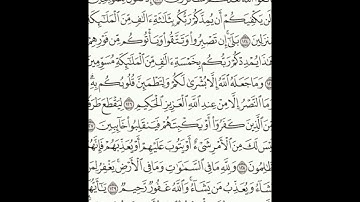 لَن يَكْفِيَكُمْ أَن يُمِدَّكُمْ رَبُّكُم بِثَلَٰثَةِ ءَالَٰفٍ مِّنَ ٱلْمَلَٰٓئِكَةِ
مُنزَلِينَ ١٢٤ بَلَىٰٓ إِن تَصْبِرُوا۟ وَتَتَّقُوا۟ وَيَأْتُوكُم مِّن فَوْرِهِمْ
هَٰذَا يُمْدِدْكُمْ رَبُّكُم بِخَمْسَةِ ءَالَٰفٍ مِّنَ ٱلْمَلَٰٓئِكَةِ مُسَوِّمِينَ
١٢٥ وَمَا جَعَلَهُ ٱللَّهُ إِلَّا بُشْرَىٰ لَكُمْ وَلِتَطْمَئِنَّ قُلُوبُكُم بِهِۦ
وَمَا ٱلنَّصْرُ إِلَّا مِنْ عِندِ ٱللَّهِ ٱلْعَزِيزِ ٱلْحَكِيمِ ١٢٦ لِيَقْطَعَ طَرَفًا
مِّنَ ٱلَّذِينَ كَفَرُوٓا۟ أَوْ يَكْبِتَهُمْ فَيَنقَلِبُوا۟ خَآئِبِينَ ١٢٧
لَيْسَ لَكَ مِنَ ٱلْأَمْرِ شَىْءٌ أَوْ يَتُوبَ عَلَيْهِمْ أَوْ يُعَذِّبَهُمْ فَإِنَّهُمْ
ظَٰلِمُونَ ١٢٨ وَلِلَّهِ مَا فِى ٱلسَّمَٰوَٰتِ وَمَا فِى ٱلْأَرْضِ يَغْفِرُ لِمَن
يَشَآءُ وَيُعَذِّبُ مَن يَشَآءُ وَٱللَّهُ غَفُورٌ رَّحِيمٌ ١٢٩ يَٰٓأَيُّهَا